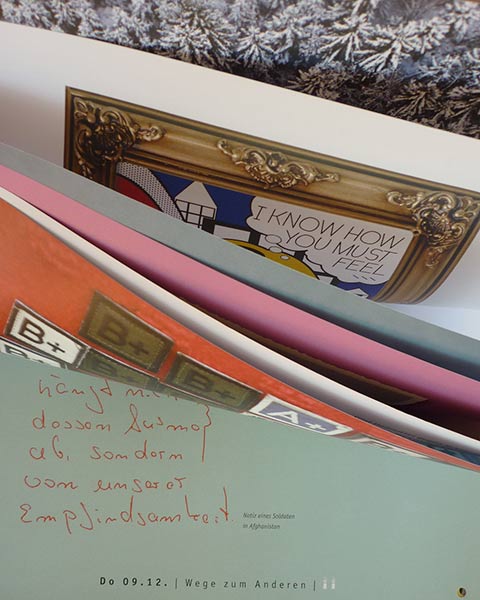 I KNOW HOW
YOU MUST
FEEL...
B+
B+
B+
B+
A+
hängt nicht
dessen Ausmaß
ab, sondern
von unserer
Empfindsamkeit.
Notiz eines Soldaten
in Afghanistan
Do 09.12. | Wege zum Anderen |